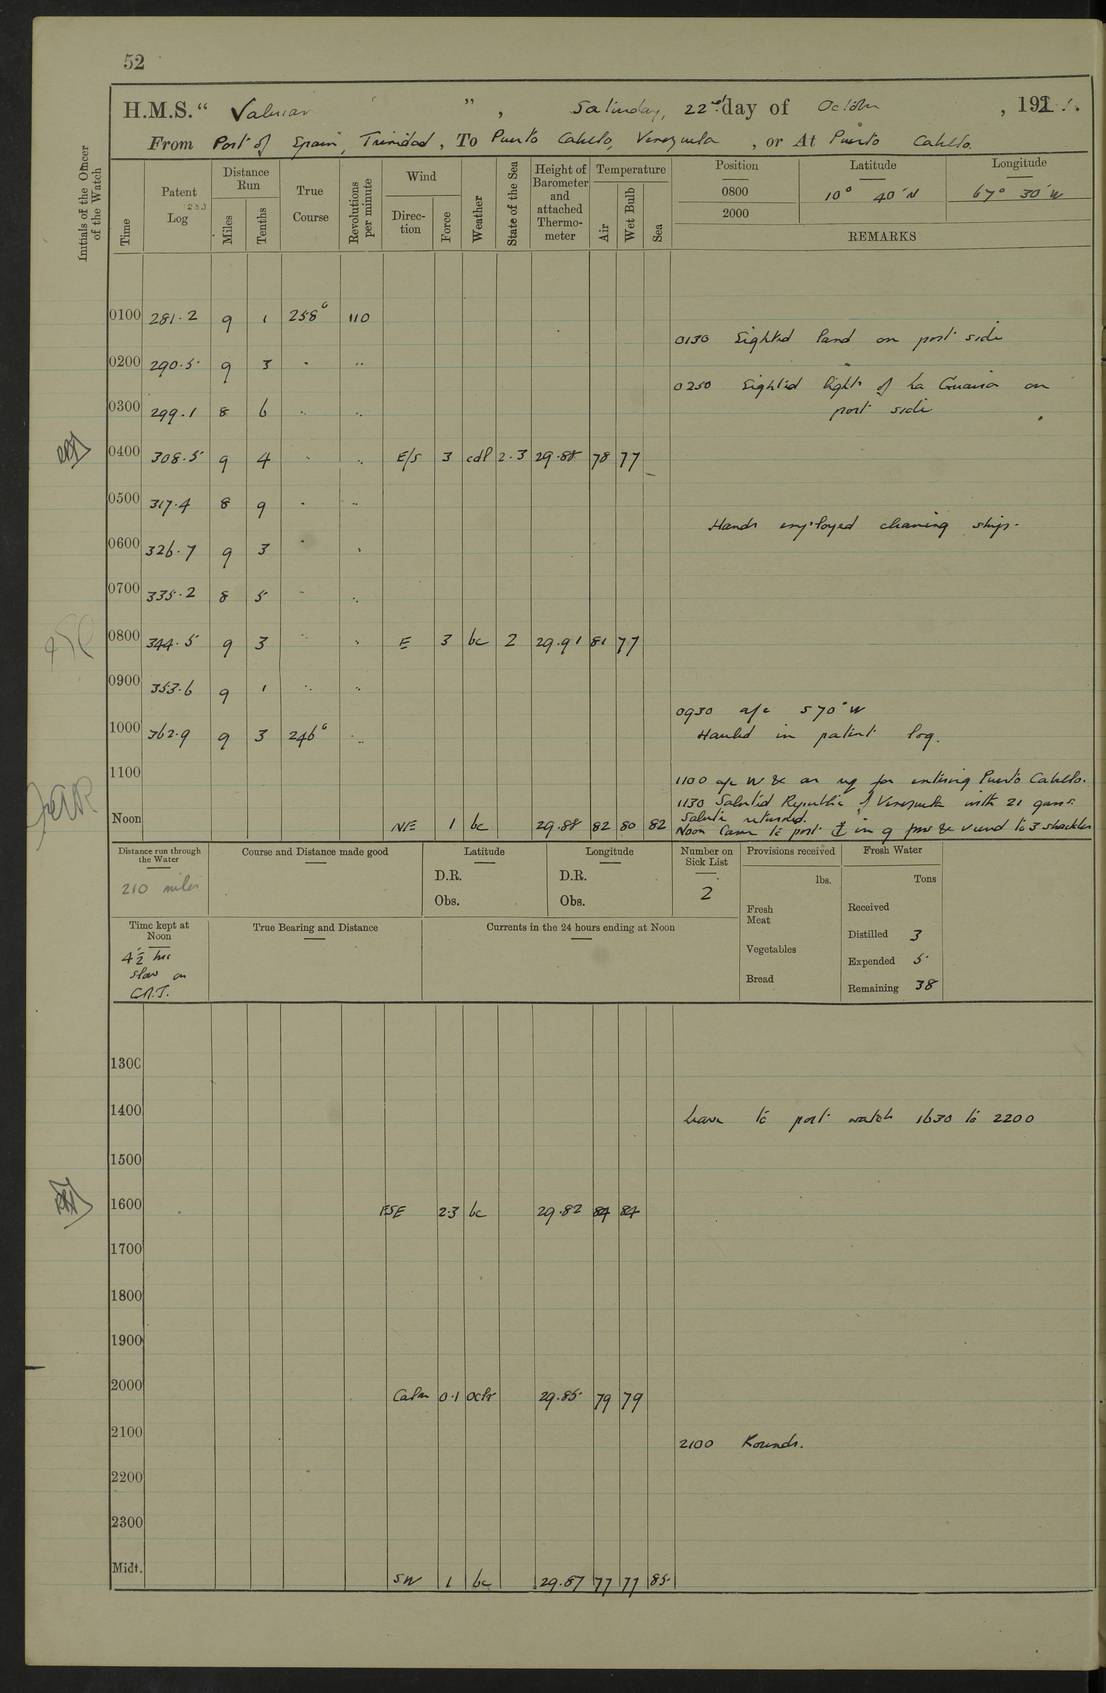 52
H.M.S. " Valerian " , Saturday, 22nd day of October , 1921.
From Port of Spain, Trinidad , To Puerto Cabello, Venezuela , or At Puerto Cabello.
Initials of the Officer of the Watch
Time
Patent Log
Distance Run
Miles
Tenths
True Course
Revolutions per minute
Wind
Direction
Force
Weather
State of the Sea
Height of Barometer and attached Thermometer
Temperature
Air
Wet Bulb
Sea
Position Latitude Longitude
0800 10° 40' N 67° 30' W
2000
REMARKS
0100 281.2 9 1 258° 110
0130 Sighted land on port side
0200 290.5 9 3 " "
0250 Sighted lights of La Guaira on
port side
0300 299.1 8 6 " "
0400 308.5 9 4 " " E/S 3 cdl 2.3 29.88 78 77
0500 317.4 8 9 " "
Hands employed cleaning ship.
0600 326.7 9 3 " "
0700 335.2 8 5 " "
0800 344.5 9 3 " " E 3 bc 2 29.91 81 77
0900 353.6 9 1 " "
0930 a/c S 70° W
1000 362.9 9 3 246° "
Hauled in patent log.
1100
1100 a/c &c as req for entering Puerto Cabello.
1130 Saluted Republic of Venezuela with 21 guns.
Salute returned.
Noon NE 1 bc 29.88 82 80 82
Noon Came to port ⚓ in 9 fms &c veered to 3 shackles
Distance run through the Water
210 miles
Course and Distance made good
Latitude
D.R.
Obs.
Longitude
D.R.
Obs.
Number on Sick List
2
Provisions received
lbs.
Fresh Meat
Vegetables
Bread
Fresh Water
Tons
Received
Distilled 3
Expended 5
Remaining 38
Time kept at Noon
4½ hrs
slow on
G.M.T.
True Bearing and Distance
Currents in the 24 hours ending at Noon
1300
1400
Leave to port watch 1630 to 2200
1500
1600 ESE 2.3 bc 29.82 84 84
1700
1800
1900
2000 Calm 0.1 29.85 79 79
2100
2100 Rounds.
2200
2300
Midt. SW 1 bc 29.87 77 77 85